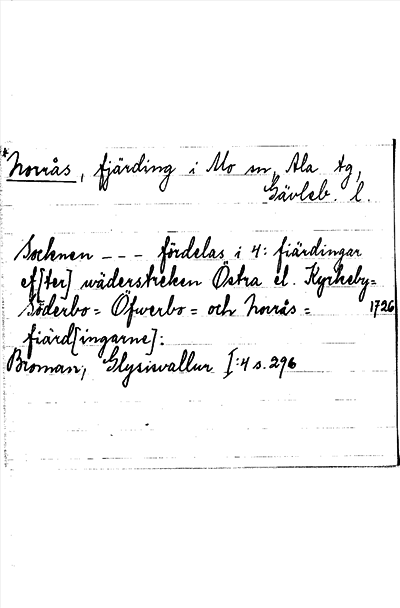 *Norrås, fjärding i Mo sn, Ala tg,
Gävleb. l.
Socknen --- fördelas i 4: fiärdingar
ef[ter] wäderstreken Östra el. Kyrkeby=
Söderbo= Öfwerbo= och Norrås= 1726
fiärd[ingarne]:
Broman, Glysisvallur I:4 s. 296